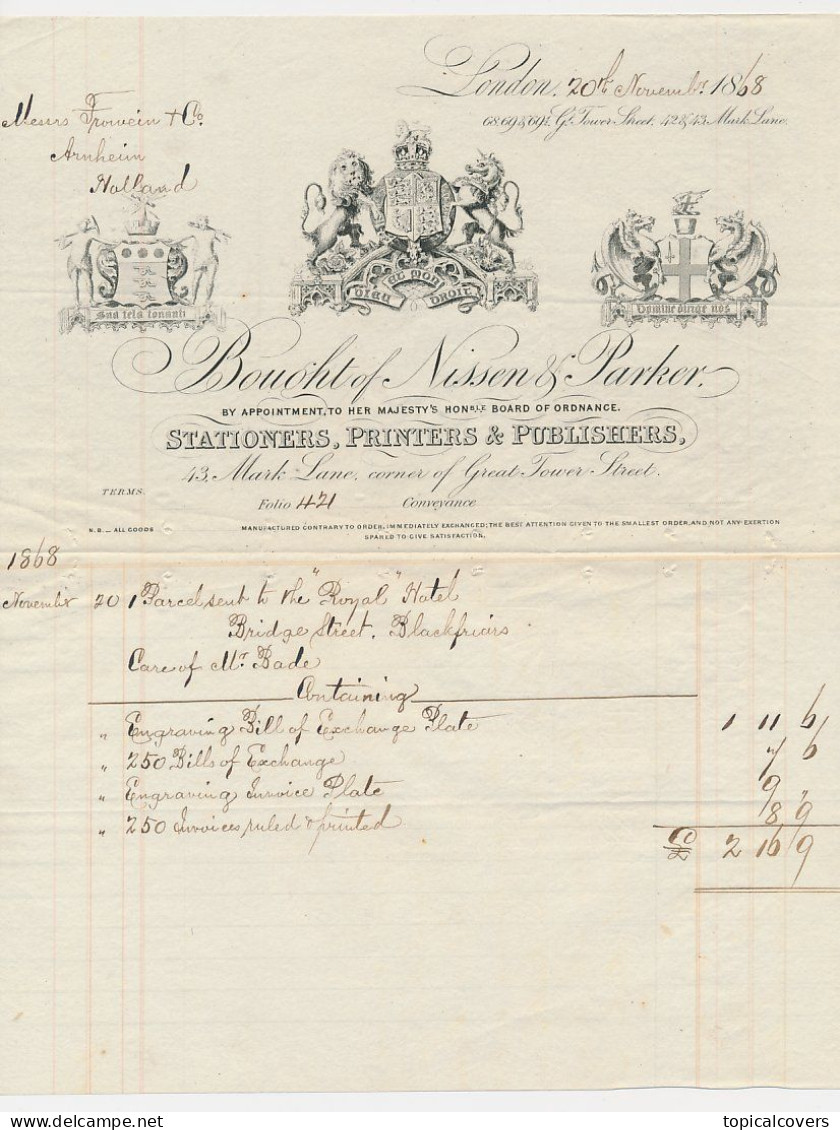 London, 20th Novembr. 1868
68.69 & 69½ Gt. Tower Street, 42 & 43 Mark Lane.
Messrs Frowein & Co.
Arnheim
Holland
Sua tela tonanti
Dieu et mon droit
Domine dirige nos
Bought of Nissen & Parker.
BY APPOINTMENT, TO HER MAJESTY'S HONBLE BOARD OF ORDNANCE.
STATIONERS, PRINTERS & PUBLISHERS,
43, Mark Lane, corner of Great Tower Street.
TERMS.
Folio 421 Conveyance
N.B. — ALL GOODS MANUFACTURED CONTRARY TO ORDER, IMMEDIATELY EXCHANGED; THE BEST ATTENTION GIVEN TO THE SMALLEST ORDER, AND NOT ANY EXERTION
SPARED TO GIVE SATISFACTION.
1868
November 20 1 Parcel sent to the "Royal" Hotel
Bridge Street, Blackfriars
Care of Mr Bade
Containing
" Engraving Bill of Exchange Plate 1 11 6
" 250 Bills of Exchange 7 6
" Engraving Invoice Plate 9 "
" 250 Invoices ruled & printed 8 9
£ 2 16 9
delcampe.net
topicalcovers